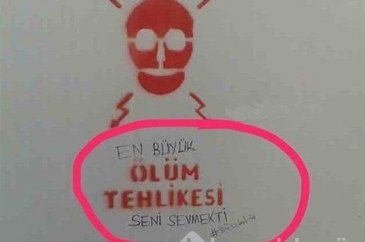 EN BÜYÜK
ÖLÜM
TEHLİKESİ
SENİ SEVMEKTİ